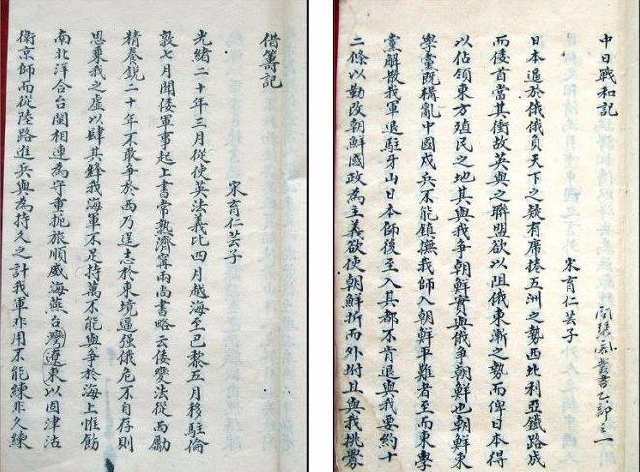 中日戰和記
問琴閣叢書乙部之一
宋育仁芸子
日本逼於俄俄負天下之兢有席捲五洲之勢西比利亞鐵路成
而倭首當其衝故英與之聯盟欲以阻俄東漸之勢而俾日本得
以佔領東方殖民之地其與我爭朝鮮實與俄爭朝鮮也朝鮮東
學黨既構亂中國戍兵不能鎮撫我師入朝鮮平難者至而東學
黨解散我軍退駐牙山日本師後至入其都不肯退與我要約十
二條以勒改朝鮮國政為主義欲使朝鮮折而外附且與我挑釁
借籌記
宋育仁芸子
光緒二十年三月從使英法義比四月越海至巴黎五月移駐倫
敦七月聞倭軍事起上書常熟濟寧兩尚書略云倭變法從西勵
精養銳二十年不敢爭於西乃逞志於東境逼強俄危不自存則
思乘我之虛以肆其鋒我海軍不足持萬不能與爭於海上惟勸
南北洋合台閩相連為守重扼旅順威海燕台灣遼東以固津沽
衛京師而從陸路進兵與為持久之計我軍非用不能練非久練